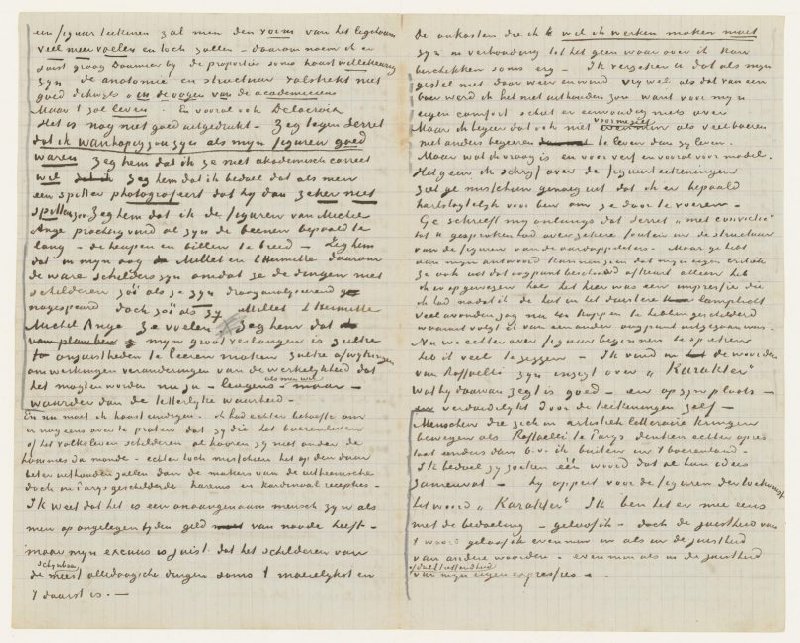 een figuur teekenen zal men den vorm van het ligchaam
veel meer voelen en toch zullen – daarom noem ik er
juist graag Daumier bij de proporties soms haast willekeurig
zijn de anatomie en structuur volstrekt niet
goed dikwijls in de oogen van de academiciens
Maar 't zal leven. En vooral ook Delacroix
Het is nog niet goed uitgedrukt – Zeg tegen Serret
dat ik wanhopig zou zijn als mijn figuren goed
waren zeg hem dat ik ze niet akademisch correct
wil zeg hem dat ik bedoel dat als men
een spitter photografeert dat hij dan zeker niet
spitten zou Zeg hem dat ik de figuren van Michel
Ange prachtig vind al zijn de beenen bepaald te
lang – de heupen en billen te breed – Zeg hem
dat in mijn oog Millet en Lhermitte daarom
de ware schilders zijn omdat ze de dingen niet
schilderen zóó als ze zijn droog analyserend
nagespeurd doch zóó als zij Millet Lhermitte
Michel Ange ze voelen Zeg hem dat
mijn groot verlangen is zulke
onjuistheden te leeren maken zulke afwijkingen
omwerkingen veranderingen van de werkelijkheid dat
het mogten worden nu ja – leugens als men wil – maar –
waarder dan de letterlijke waarheid –
En nu moet ik haast eindigen. ik had echter behoefte om
er nog eens over te praten dat zij die het boerenleven
of het volksleven schilderen al hooren zij niet onder de
hommes du monde – echter toch misschien het op den duur
beter uithouden zullen dan de makers van de
doch in Parijs geschilderde harems en kardinaal recepties –
Ik weet dat het is een onaangenaam mensch zijn als
men op ongelegen tijden geld van noode heeft –
maar mijn excuus is juist dat het schilderen van
schijnbaar
de meest alledaagsche dingen soms 't moeielijkst en
't duurst is. –
De onkosten die ik wil ik werken maken moet
zijn in verhouding tot het geen waar over ik kan
beschikken soms erg – Ik verzeker u dat als mijn
gestel niet door weer en wind vrij wel als dat van een
boer werd ik het niet uithouden zou want voor mijn
eigen comfort schiet er eenvoudig niets over
Maar ik begeer dat ook niet voor mijzelf als veel boeren
niet anders begeeren te leven dan zij leven.
Maar wat ik vraag is en voor verf en vooral voor model.
Uit geen ik schrijf over de figuurteekeningen
zult ge misschien genoeg uit dat ik er bepaald
hartstogtelijk voor ben om ze door te voeren –
Ge schreeft mij onlangs dat Serret „met convictie"
tot u gesproken had over zekere fouten in de structuur
van de figuren van de aardappeleters – Maar ge hebt
aan mijn antwoord kunnen zien dat mijn eigen critiek
ze ook uit dat oogpunt beschouwd afkeurt alleen heb
ik er op gewezen hoe het hier was een impressie die
ik had nadat ik de hut in het duistere lamplicht
veel avonden zag na koppen te hebben geschilderd
waaruit volgt ik van een ander oogpunt uitgegaan was.
Nu we echter over figuur beginnen te spreken
heb ik veel te zeggen – Ik vind in de woorden
van Raffaelli zijn inzigt over „Karakter"
wat hij daarvan zegt is goed – en op zijn plaats –
en verduidelijkt door de teekeningen zelf –
Menschen die zich in artistiek litteraire kringen
bewegen als Raffaelli te Parijs denken echter op 't
laatst anders dan b.v. ik buiten in 't boerenland.
Ik bedoel zij zoeken één woord dat al hun idees
zamenvat – hij oppert voor de figuren der toekomst
het woord „Karakter" Ik ben het er mee eens
met de bedoeling – geloof ik – doch de juistheid van
't woord geloof ik even min in als in de juistheid
van andere woorden – even min als in de juistheid
of doeltreffendheid
van mijn eigen expressies –.